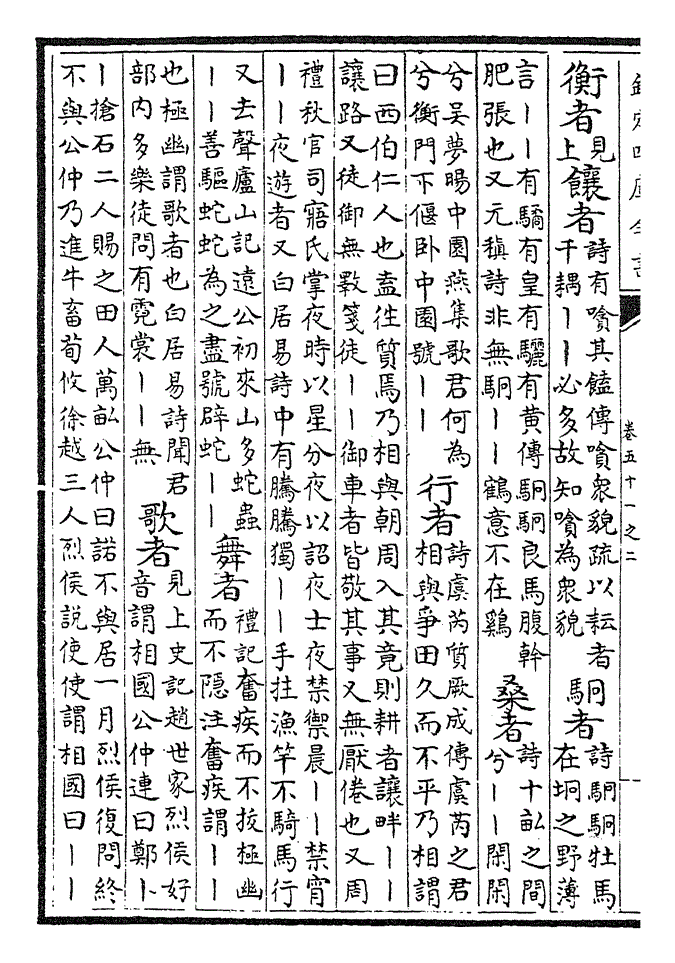 欽定四庫全書
卷五十一之二
衡者見上饟者詩有嗿其饁傳嗿衆貌疏以耘者
千耦丨丨必多故知嗿為衆貌駉者詩駉駉牡馬
在坰之野薄
言丨丨有驈有皇有驪有黄傳駉駉良馬腹幹
肥張也又元稹詩非無駉丨丨鶴意不在鷄桑者詩十畝之間
兮丨丨閑閑
兮吳夢暘中園燕集歌君何為
兮衡門下偃卧中園號丨丨行者詩虞芮質厥成傳虞芮之君
相與爭田久而不平乃相謂
曰西伯仁人也盍徃質焉乃相與朝周入其竟則耕者讓畔丨丨
讓路又徒御無斁箋徒丨丨御車者皆敬其事又無厭倦也又周
禮秋官司寤氏掌夜時以星分夜以詔夜士夜禁禦晨丨丨禁宵
丨丨夜遊者又白居易詩中有騰騰獨丨丨手拄漁竿不騎馬行
又去聲廬山記遠公初來山多蛇蟲
丨丨善驅蛇蛇為之盡號辟蛇丨丨舞者禮記奮疾而不拔極幽
而不隱注奮疾謂丨丨
也極幽謂歌者也白居易詩聞君
部内多樂徒問有霓裳丨丨無歌者見上史記趙世家烈侯好
音謂相國公仲連曰鄭丨
丨搶石二人賜之田人萬畝公仲曰諾不與居一月烈侯復問終
不與公仲乃進牛畜荀攸徐越三人烈侯説使使謂相國曰丨丨